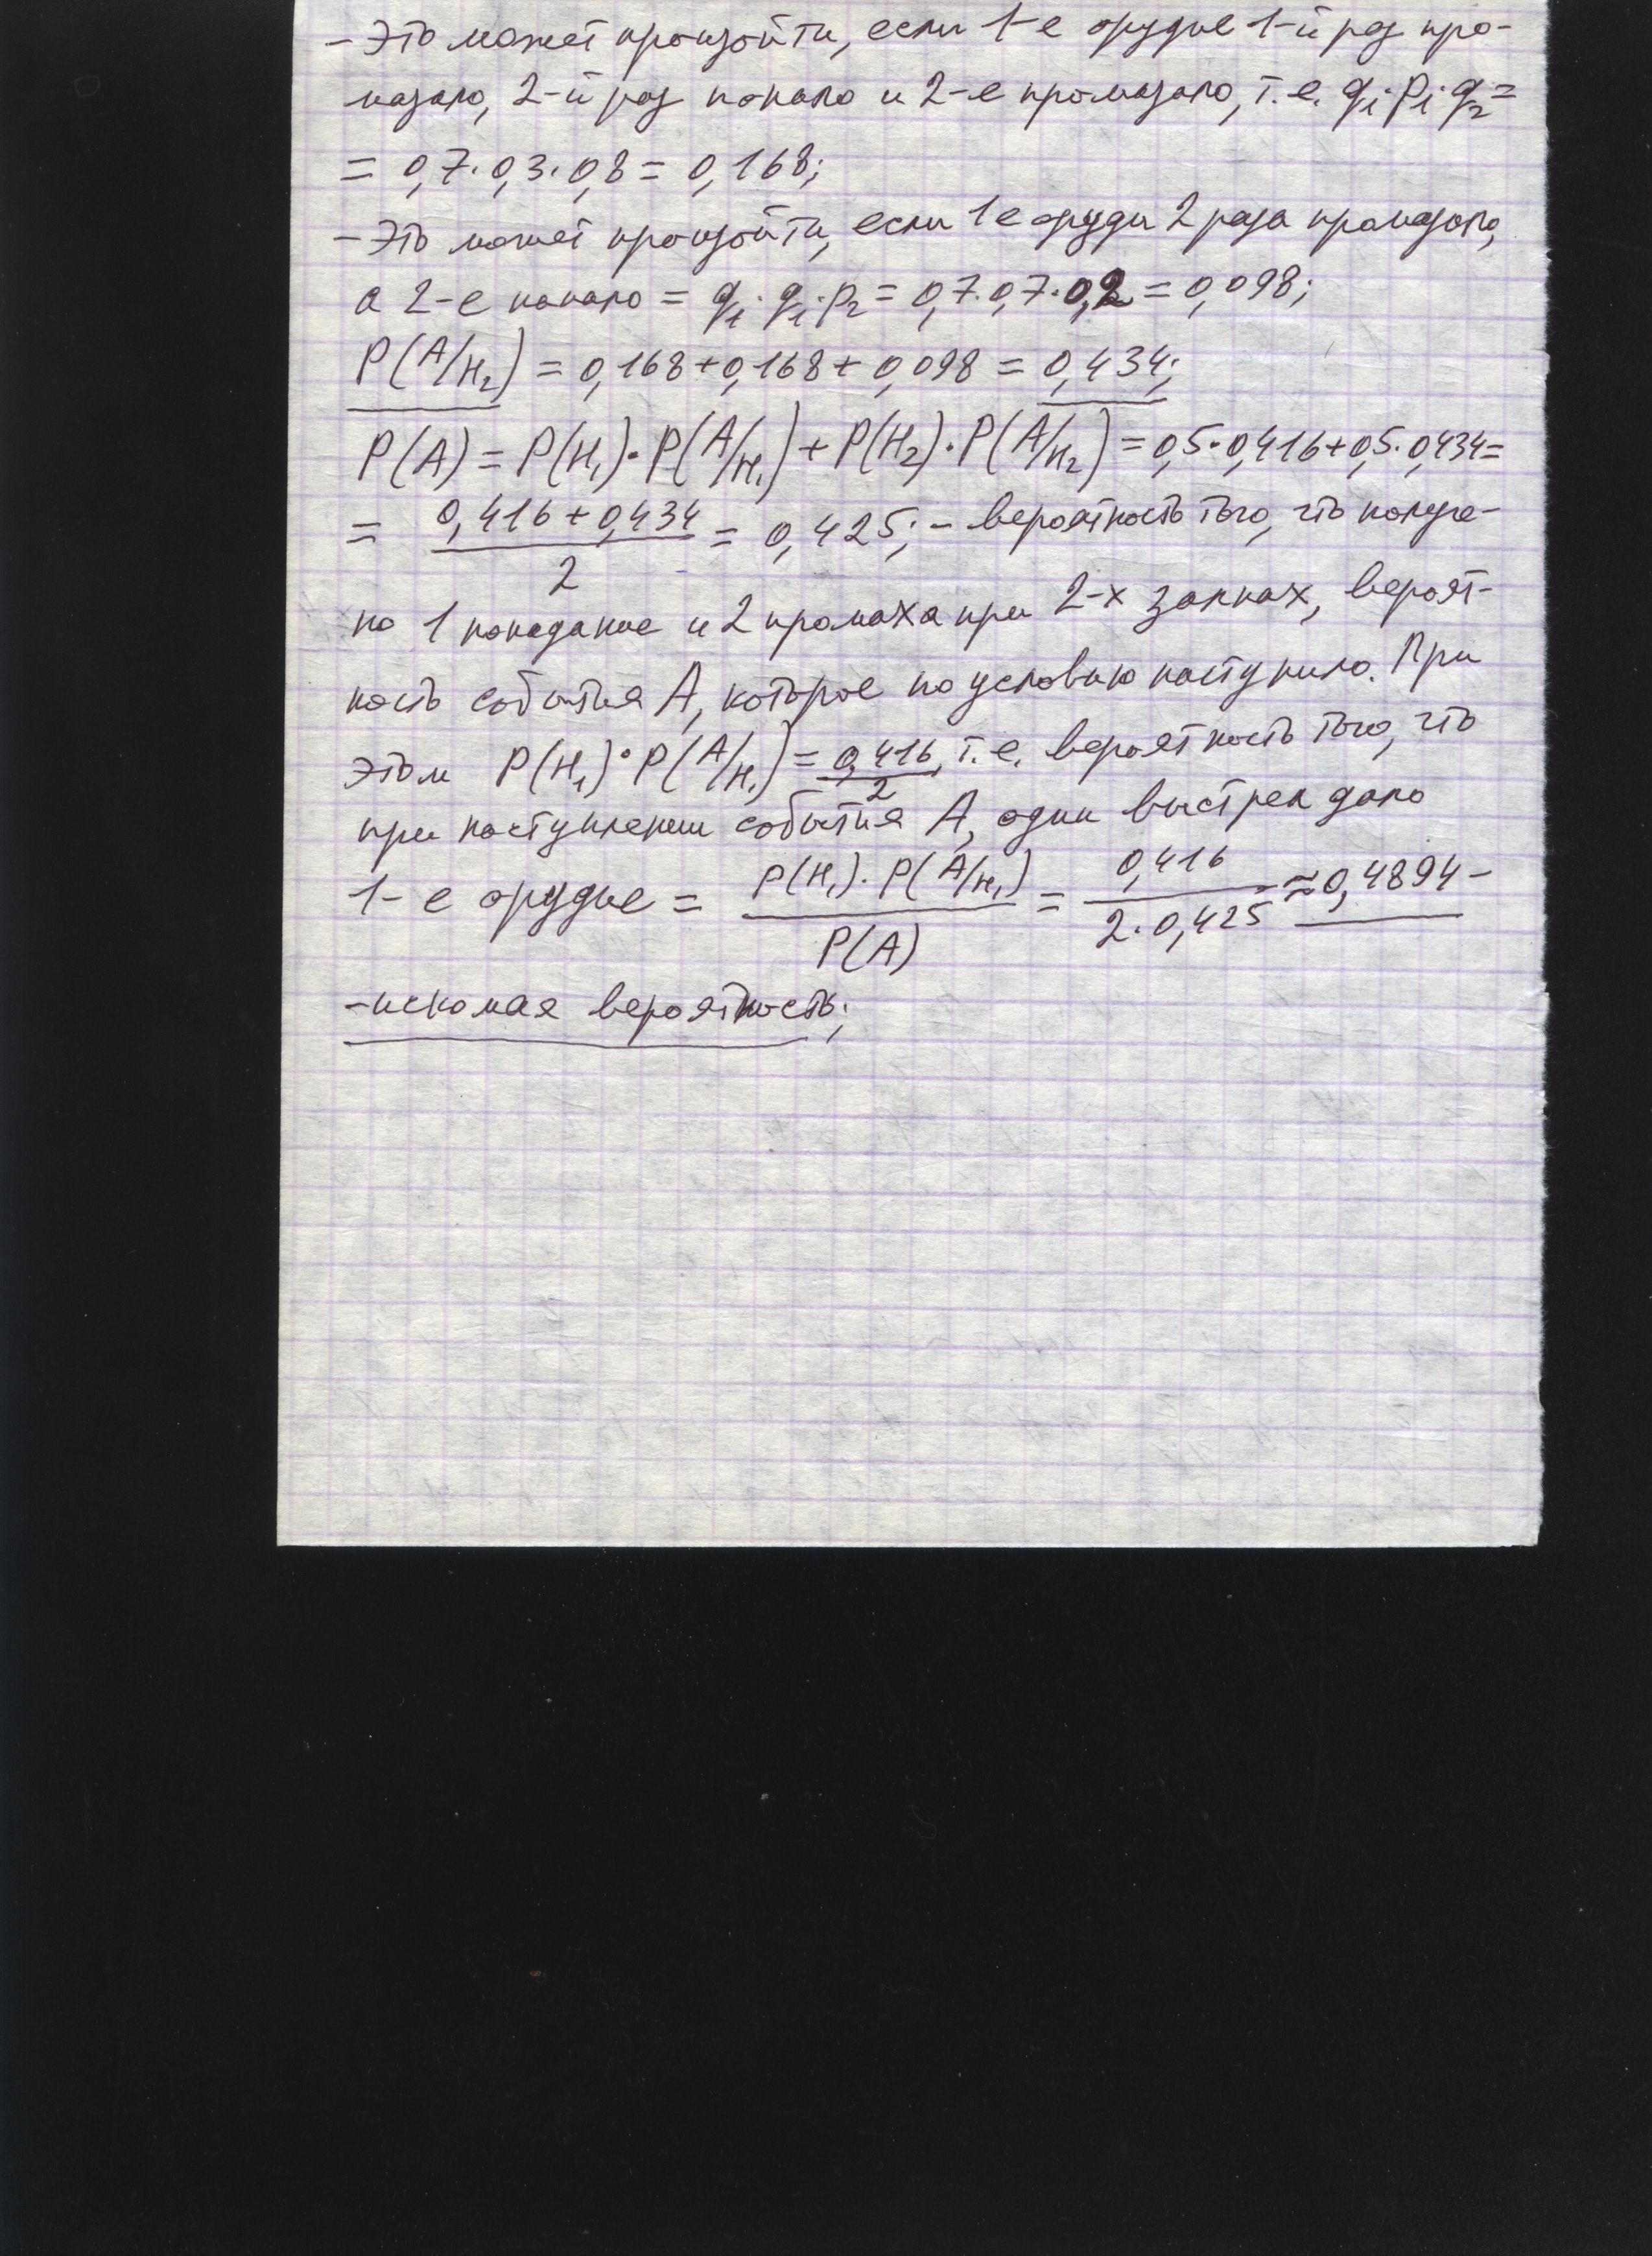 - Это может произойти, если 1-е орудие 1-й раз про-
мазало, 2-й раз попало и 2-е промазало, т.е. q₁·p₁·q₂=
= 0,7·0,3·0,8 = 0,168;
- Это может произойти, если 1е оруди 2 раза промазало,
а 2-е попало = q₁·q₁·p₂ = 0,7·0,7·0,2 = 0,098;
P(A/H₂) = 0,168+0,168+0,098 = 0,434;
P(A) = P(H₁)·P(A/H₁)+P(H₂)·P(A/H₂) = 0,5·0,416+0,5·0,434=
= (0,416+0,434)/2 = 0,425; - вероятность того, что получе-
но 1 попадание и 2 промаха при 2-х залпах, вероят-
ность события A, которое по условию наступило. При
этом P(H₁)·P(A/H₁) = 0,416/2, т.е. вероятность того, что
при наступлении события A, один выстрел дало
1-е орудие = P(H₁)·P(A/H₁)/P(A) = 0,416/(2·0,425) ≈ 0,4894 -
- искомая вероятность;